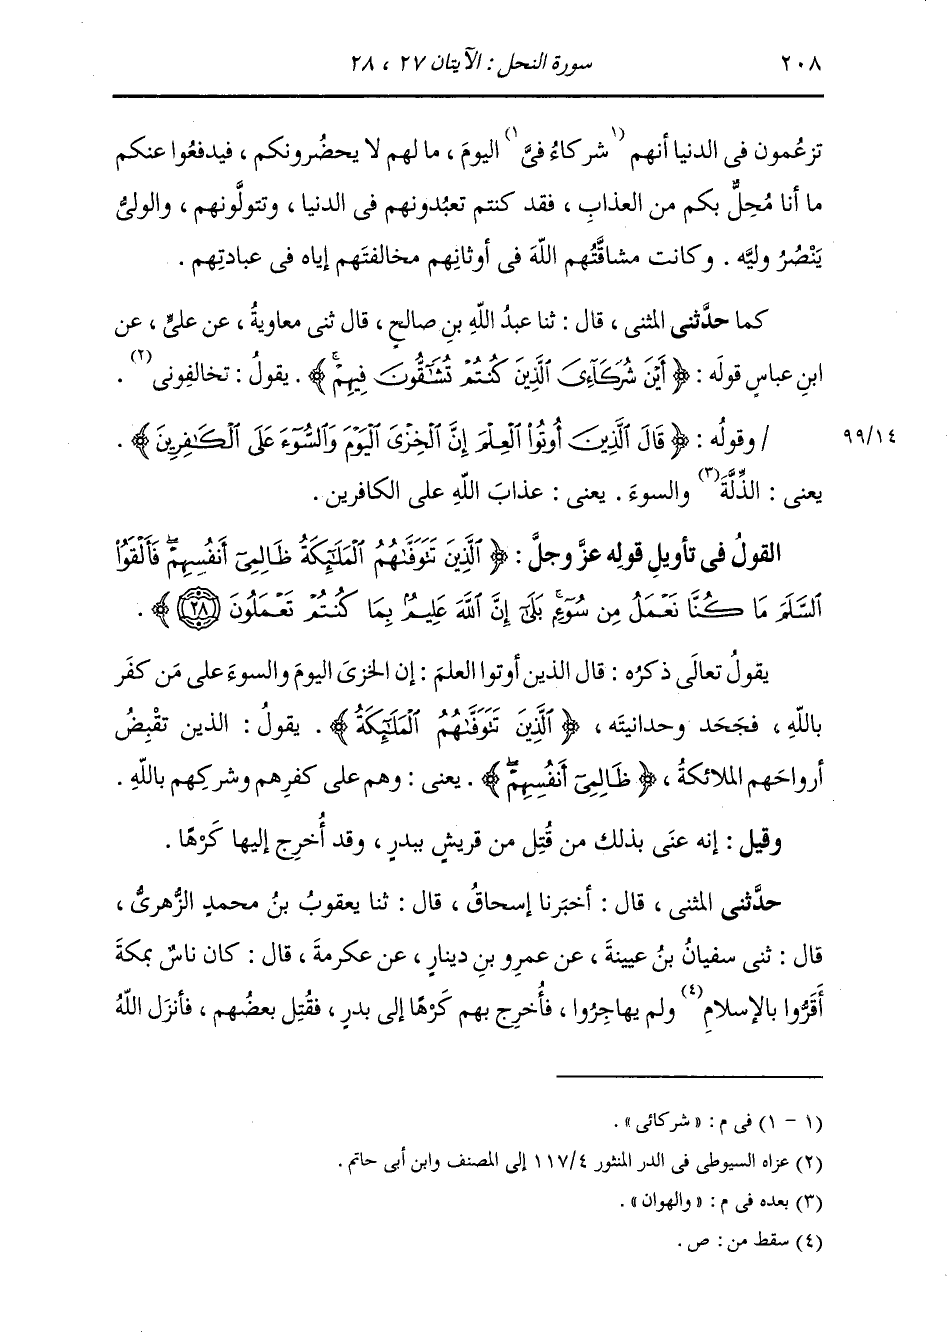 ٢٠٨ سورة النحل : الآيتان ٢٧ ، ٢٨
تزعُمون فى الدنيا أنهم (١شركاءُ فىَّ١) اليومَ ، ما لهم لا يحضُرونكم ، فيدفعُوا عنكم
ما أنا مُحِلٌّ بكم من العذابِ ، فقد كنتم تعبُدونهم فى الدنيا ، وتتولَّونهم ، والولىُّ
يَنْصُرُ وليَّه . وكانت مشاقَّتُهم اللَّهَ فى أوثانِهم مخالفتَهم إياه فى عبادتِهم .
كما حدَّثنى المثنى ، قال : ثنا عبدُ اللَّهِ بنِ صالحٍ ، قال ثنى معاويةُ ، عن علىٍّ ، عن
ابنِ عباسٍ قولَه : ﴿ أَيْنَ شُرَكَآءِىَ ٱلَّذِينَ كُنتُمْ تُشَٰٓقُّونَ فِيهِمْۚ ﴾ . يقولُ : تخالفِونى(٢) .
/ وقولُه : ﴿ قَالَ ٱلَّذِينَ أُوتُوا۟ ٱلْعِلْمَ إِنَّ ٱلْخِزْىَ ٱلْيَوْمَ وَٱلسُّوٓءَ عَلَى ٱلْكَٰفِرِينَ ﴾ . ٩٩/١٤
يعنى : الذِّلَّةَ(٣) والسوءَ . يعنى : عذابَ اللَّهِ على الكافرين .
القولُ فى تأويلِ قولِه عزَّ وجلَّ : ﴿ ٱلَّذِينَ تَتَوَفَّىٰهُمُ ٱلْمَلَٰٓئِكَةُ ظَالِمِىٓ أَنفُسِهِمْۖ فَأَلْقَوُا۟
ٱلسَّلَمَ مَا كُنَّا نَعْمَلُ مِن سُوٓءٍۭۚ بَلَىٰٓ إِنَّ ٱللَّهَ عَلِيمٌۢ بِمَا كُنتُمْ تَعْمَلُونَ ٢٨ ﴾ .
يقولُ تعالَى ذكرُه : قال الذين أوتوا العلمَ : إن الخزىَ اليومَ والسوءَ على مَن كفَر
باللَّهِ ، فجَحَد وحدانيتَه ، ﴿ ٱلَّذِينَ تَتَوَفَّىٰهُمُ ٱلْمَلَٰٓئِكَةُ ﴾ . يقولُ : الذين تقْبِضُ
أرواحَهم الملائكةُ ، ﴿ ظَالِمِىٓ أَنفُسِهِمْۖ ﴾ . يعنى : وهم على كفرِهم وشركِهم باللَّهِ .
وقيل : إنه عنَى بذلك من قُتِل من قريشٍ ببدرٍ ، وقد أُخرِج إليها كَرْهًا .
حدَّثنى المثنى ، قال : أخبَرنا إسحاقُ ، قال : ثنا يعقوبُ بنُ محمدٍ الزُّهرىُّ ،
قال : ثنى سفيانُ بنُ عيينةَ ، عن عمرِو بنِ دينارٍ ، عن عكرمةَ ، قال : كان ناسٌ بمكةَ
أَقَرُّوا بالإسلامِ(٤) ولم يهاجِرُوا ، فأُخرِج بهم كَرْهًا إلى بدرٍ ، فقُتِل بعضُهم ، فأنزَل اللَّهُ
(١ - ١) فى م : « شركائى » .
(٢) عزاه السيوطى فى الدر المنثور ١١٧/٤ إلى المصنف وابن أبى حاتم .
(٣) بعده فى م : « والهوان » .
(٤) سقط من : ص .